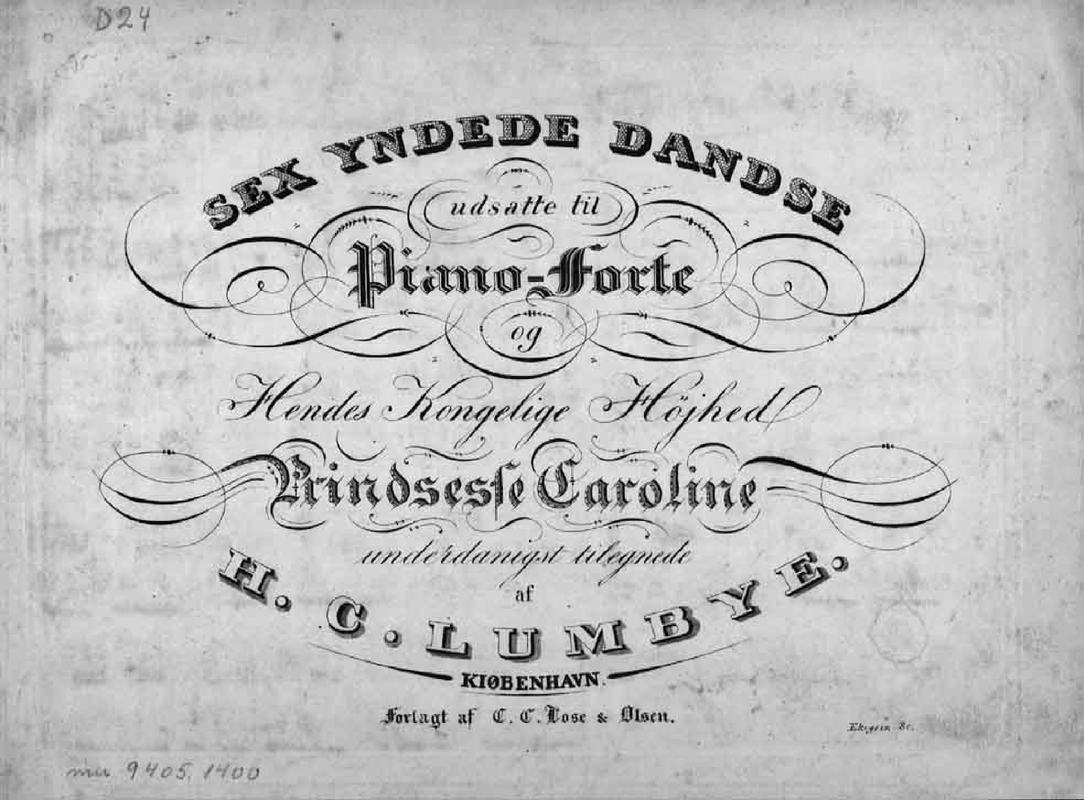 D24
SEX YNDEDE DANDSE
udsatte til
Piano-Forte
og
Hendes Kongelige Höjhed
Prindsesſe Caroline
underdanigst tilegnede
af
H. C. LUMBYE.
KIØBENHAVN.
Forlagt af C. C. Lose & Olsen.
Sc.
mu 9405. 1400